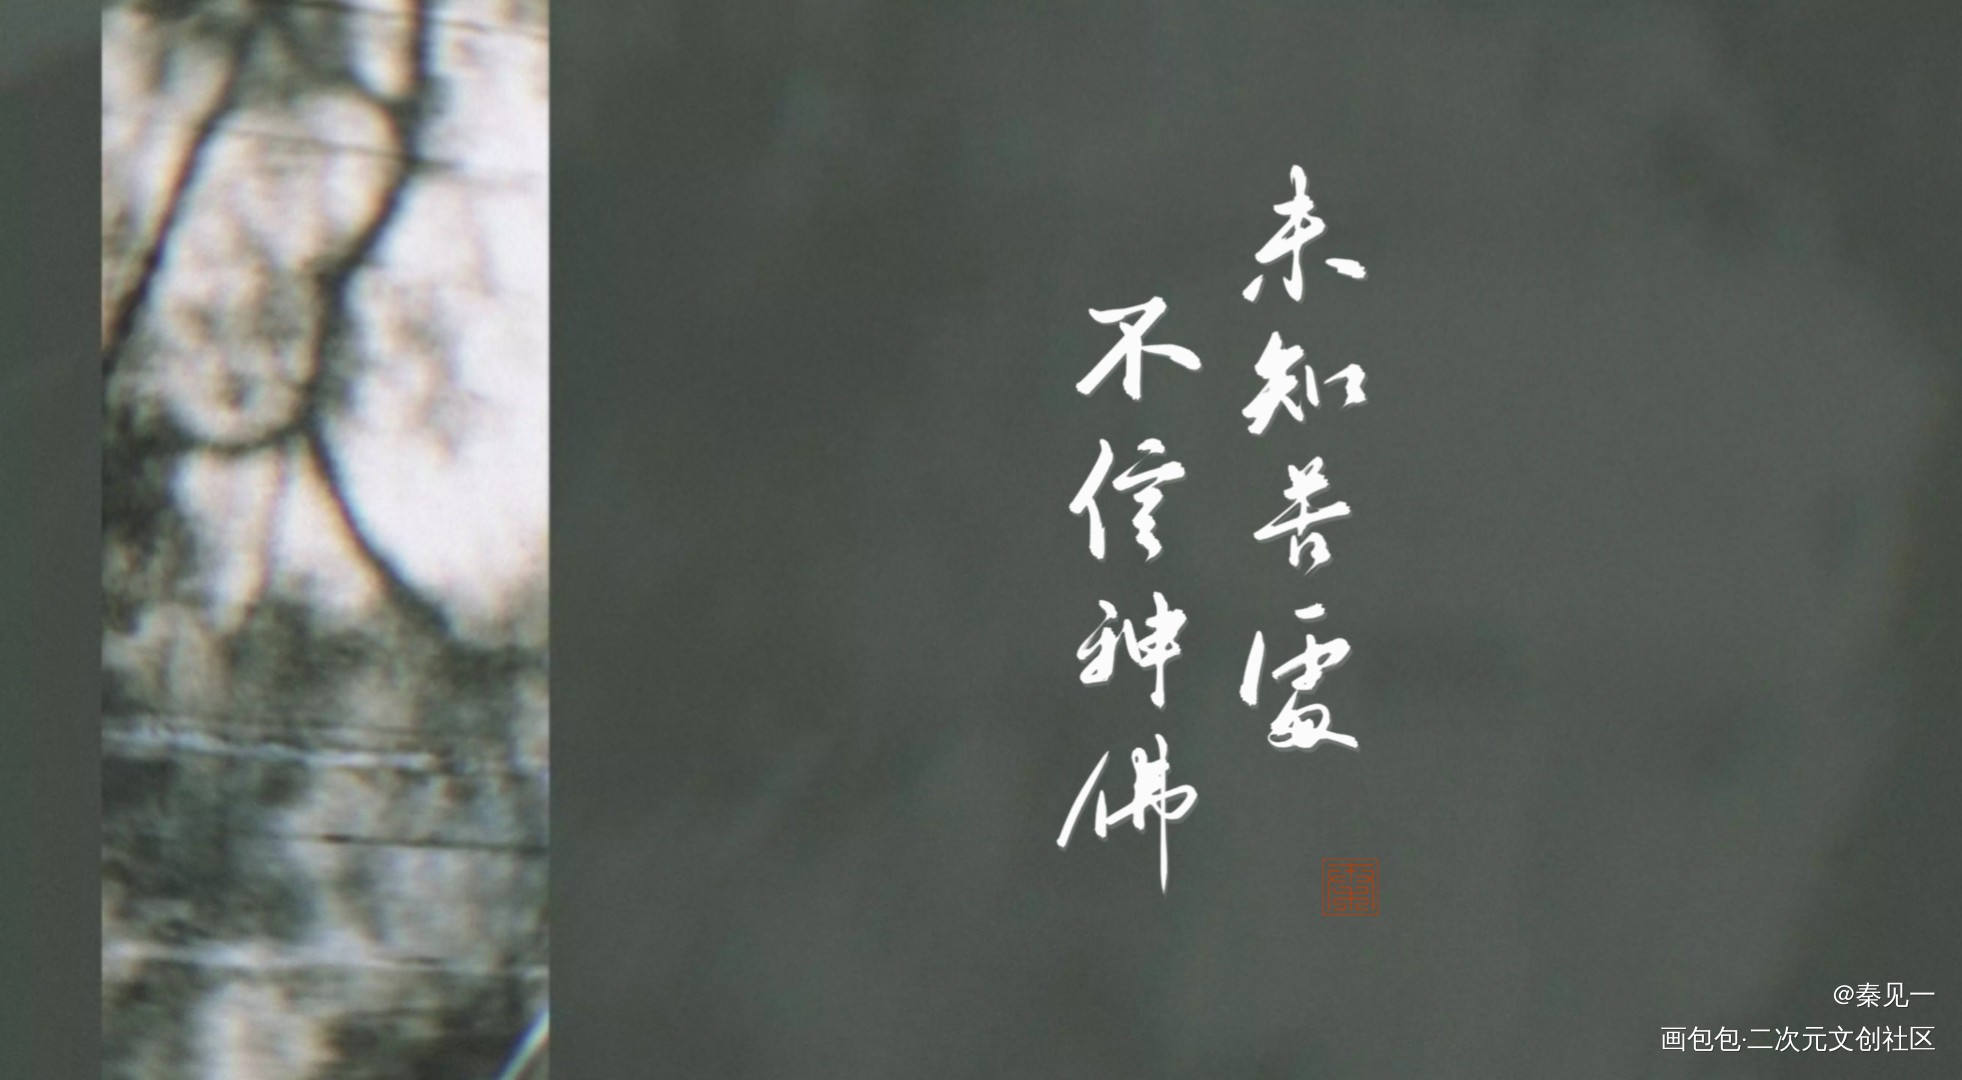 未知苦處
不信神佛
@秦见一
画包包·二次元文创社区